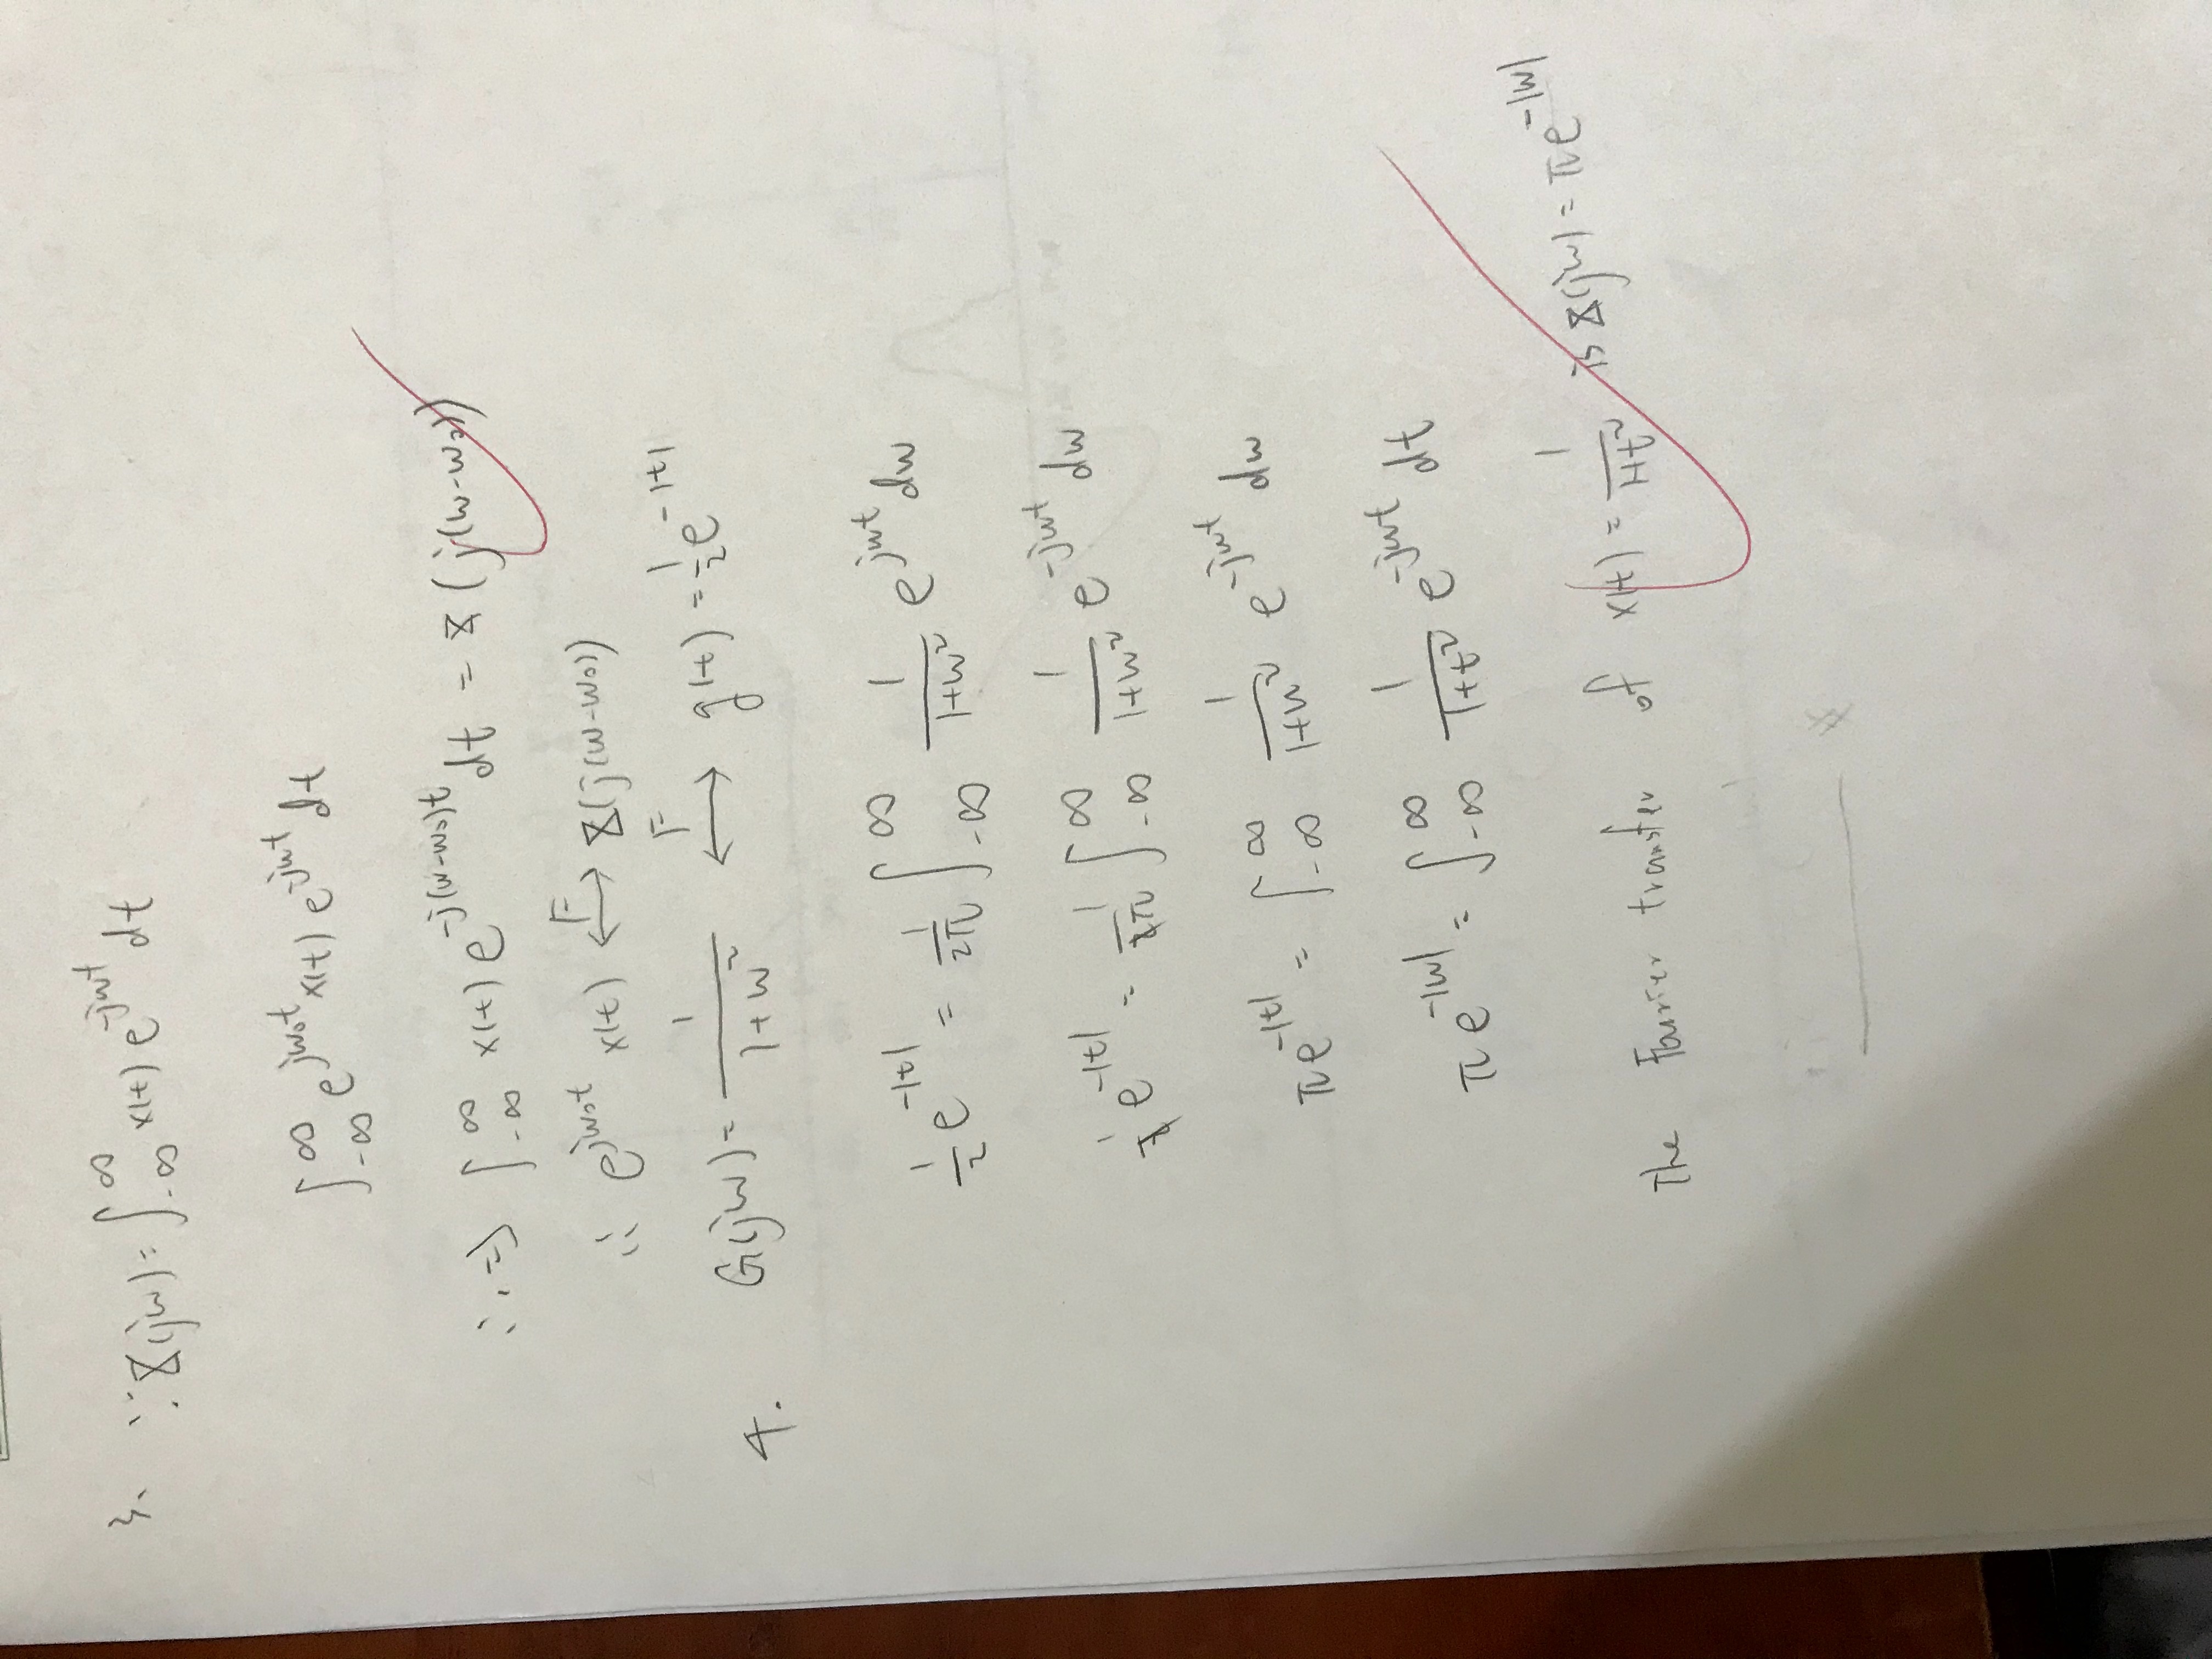 3. ∵ X(jw) = ∫_{-∞}^{∞} x(t) e^{-jwt} dt
∫_{-∞}^{∞} e^{jw₀t} x(t) e^{-jwt} dt
∴ ⇒ ∫_{-∞}^{∞} x(t) e^{-j(w-w₀)t} dt = X(j(w-w₀))
∴ e^{jw₀t} x(t) ⟷^{F} X(j(w-w₀))
4. G(jw) = \frac{1}{1+w²} ⟷^{F} g(t) = \frac{1}{2} e^{-|t|}
\frac{1}{2} e^{-|t|} = \frac{1}{2π} ∫_{-∞}^{∞} \frac{1}{1+w²} e^{jwt} dw
\frac{1}{2} e^{-|t|} = \frac{1}{2π} ∫_{-∞}^{∞} \frac{1}{1+w²} e^{-jwt} dw
π e^{-|t|} = ∫_{-∞}^{∞} \frac{1}{1+w²} e^{-jwt} dw
π e^{-|w|} = ∫_{-∞}^{∞} \frac{1}{1+t²} e^{-jwt} dt
The Fourier transfer of x(t) = \frac{1}{1+t²} is X(jw) = π e^{-|w|}